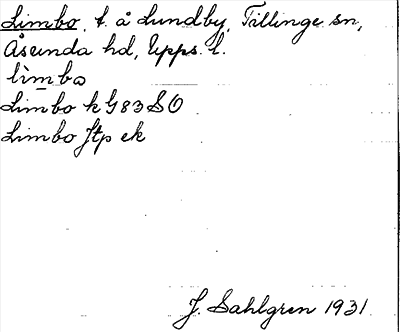 Limbo, t. å Lundby, Tillinge sn,
Åsunda hd, Upps. l.
lìmbo
Limbo k G83 SO
Limbo Jtp ek
J. Sahlgren 1931